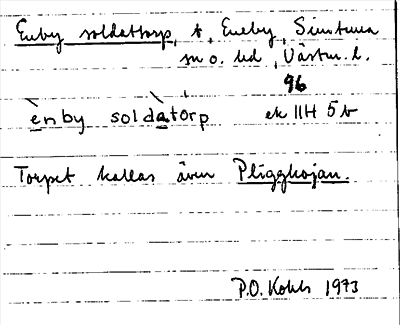 Eneby soldattorp, t, Eneby, Simtuna
sn o. hd, Västm. l.
96
ènby soldàtórp ek 11H 5b
Torpet kallas även Pliggkojan.
P.O. Kohls 1973